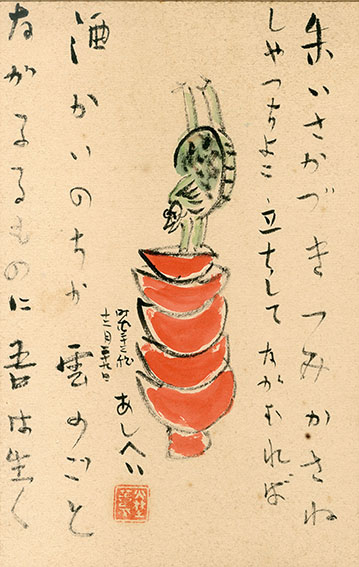 朱いさかづきつみかさね
しやつちよこ立ちしてながむれば
酒がいのちか雲のごと
ながるるものに吾は生く
あしへい